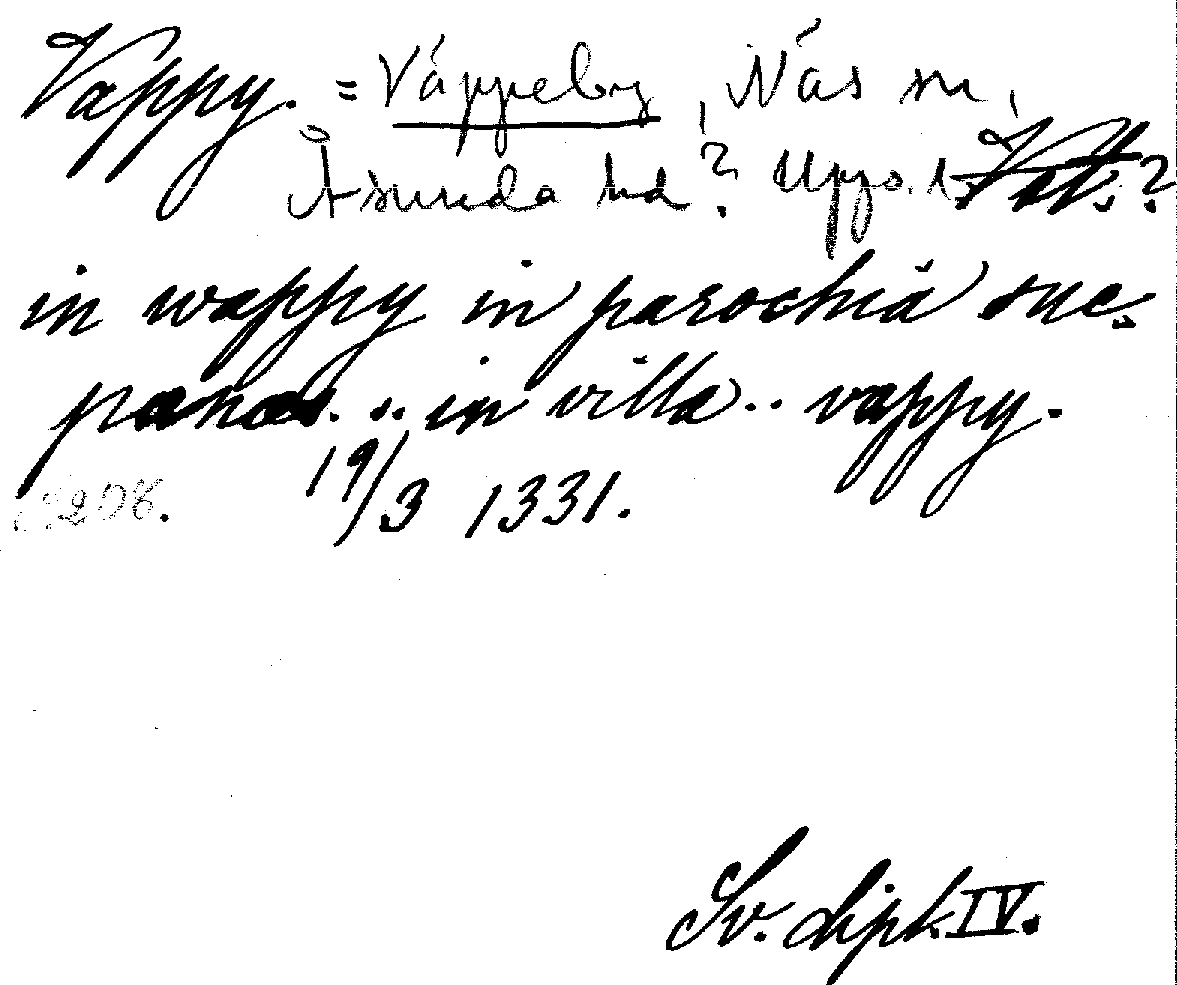 Vappy. = Väppeby, Näs sn,
Åsunda hd? Upps. l. Vstl.?
in wappy in parochiă suc,
panæs. .. in villa .. vappy.
S. 208. 19/3 1331.
Sv. dipl. IV.